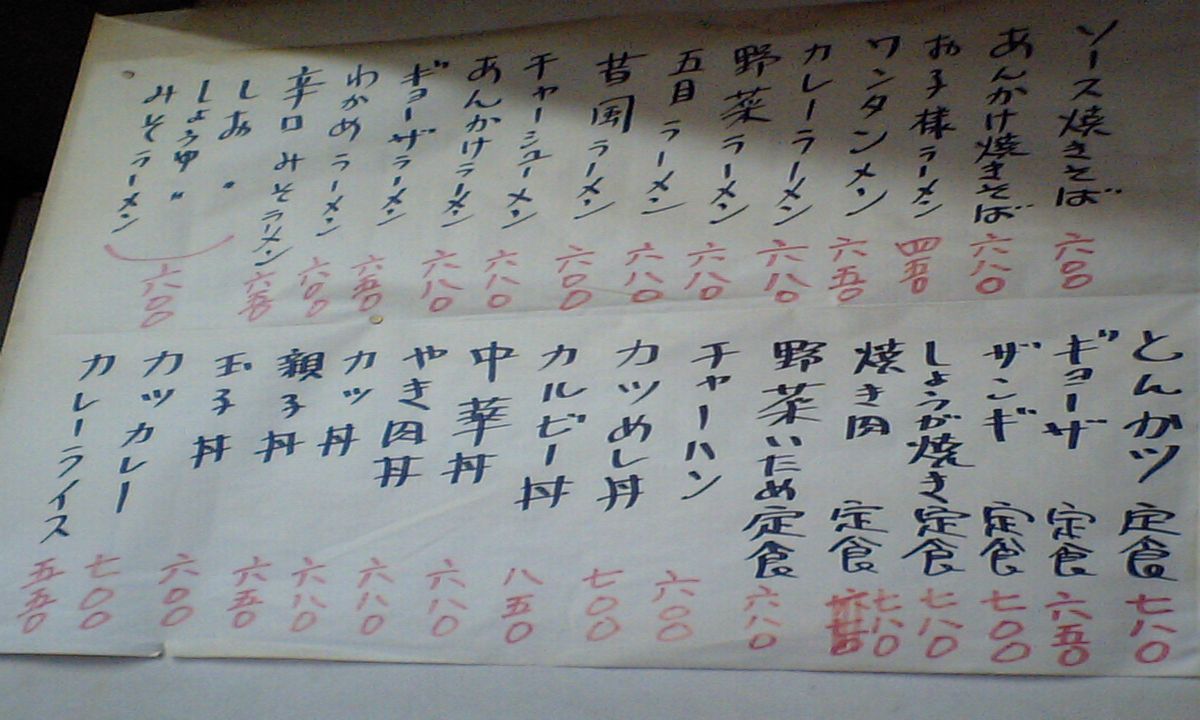 ソース焼きそば 六〇〇
あんかけ焼きそば 六八〇
お子様ラーメン 四五〇
ワンタンメン 六五〇
カレーラーメン 六八〇
野菜ラーメン 六八〇
五目ラーメン 六八〇
昔風ラーメン 六〇〇
チャーシューメン 六八〇
あんかけラーメン 六八〇
ギョーザラーメン 六五〇
わかめラーメン 六〇〇
辛口みそラーメン 六五〇
しお 〃
しょうゆ 〃
みそラーメン 六〇〇
とんかツ定食 七八〇
ギョーザ定食 六五〇
ザンギ定食 七〇〇
しょうが焼き定食 七八〇
焼き肉定食 七八〇
野菜いため定食 六八〇
チャーハン 六〇〇
カツめし丼 七〇〇
カルビー丼 八五〇
中華丼 六八〇
やき肉丼 六八〇
カツ丼 六八〇
親子丼 六五〇
玉子丼 六〇〇
カツカレー 七〇〇
カレーライス 五五〇